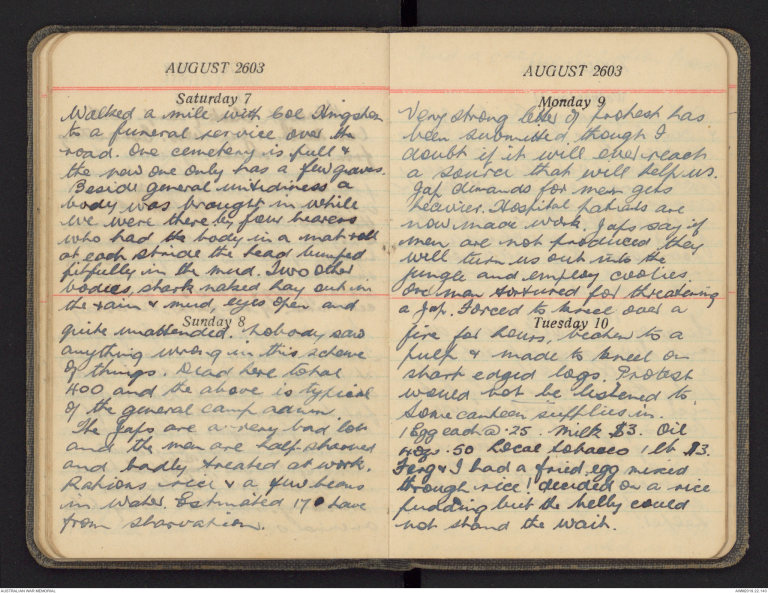 AUGUST 2603
Saturday 7
Walked a mile with Col Hingston
to a funeral service over the
road. One cemetery is full &
the new one only has a few graves.
Beside general untidiness a
body was brought in while
we were there by four bearers
who had the body in a mat roll
at each stride the head bumped
pitifully in the mud. Two other
bodies, stark naked lay out in
the rain & mud, eyes open and
Sunday 8
quite unattended. Nobody saw
anything wrong in this scheme
of things. Dead here total
400 and the above is typical
of the general camp admin.
The Japs are a very bad lot
and the men are half starved
and badly treated at work.
Rations rice & a few beans
in water. Estimated 170 have
from starvation.
AUGUST 2603
Monday 9
Very strong letter of protest has
been submitted though I
doubt if it will ever reach
a source that will help us.
Jap demands for men gets
heavier. Hospital patients are
now made work. Japs say if
men are not produced they
will turn us out into the
jungle and employ coolies.
One man tortured for threatening
a Jap. Forced to kneel over a
Tuesday 10
fire for hours, beaten to a
pulp & made to kneel on
sharp edged logs. Protest
would not be listened to.
Some canteen supplies in.
1 Egg each @ .25. Milk $3. Oil
.50 Local tobacco 1 lb $3.
Ferg & I had a fried egg mixed
through rice! decided on a rice
pudding but the belly could
not stand the wait.
AUSTRALIAN WAR MEMORIAL
AWM2019.22.143